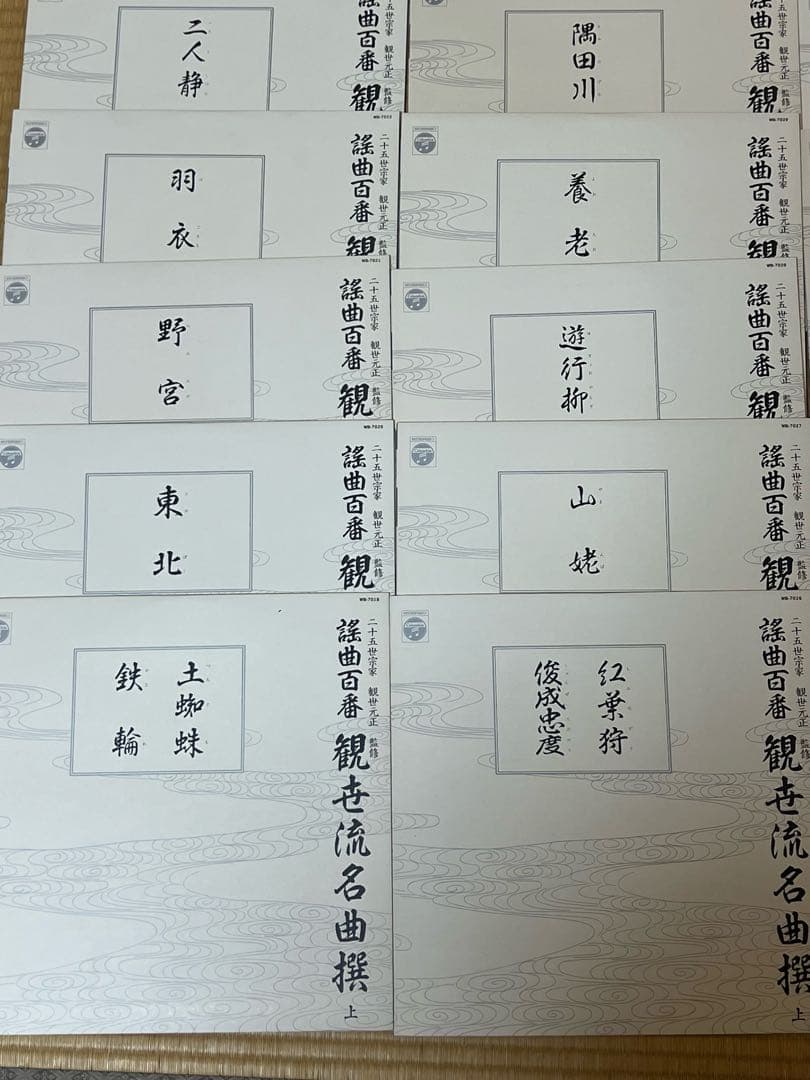 二人静
謡曲百番 観
二十五世宗家 観世元正 監修
隅田川
謡曲百番 観
二十五世宗家 観世元正 監修
羽衣
謡曲百番 観
二十五世宗家 観世元正 監修
WB-7022
養老
謡曲百番 観
二十五世宗家 観世元正 監修
WB-7029
野宮
謡曲百番 観
二十五世宗家 観世元正 監修
WB-7021
遊行柳
謡曲百番 観
二十五世宗家 観世元正 監修
WB-7028
東北
謡曲百番 観
二十五世宗家 観世元正 監修
WB-7020
山姥
謡曲百番 観
二十五世宗家 観世元正 監修
WB-7027
土蜘蛛
鉄輪
謡曲百番 観世流名曲撰 上
二十五世宗家 観世元正 監修
紅葉狩
俊成忠度
謡曲百番 観世流名曲撰 上
二十五世宗家 観世元正 監修